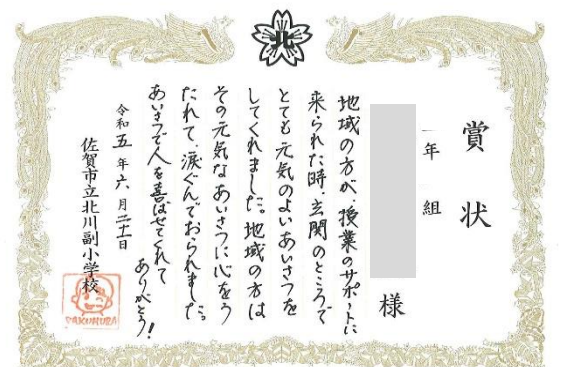 北
賞状
一年 組
様
地域の方が、授業のサポートに
来られた時、玄関のところで
とても元気のよいあいさつを
してくれました。地域の方は
その元気なあいさつに心をう
たれて、涙ぐんでおられました。
あいさつで人を喜ばせてくれて
ありがとう!
令和五年六月二十一日
佐賀市立北川副小学校